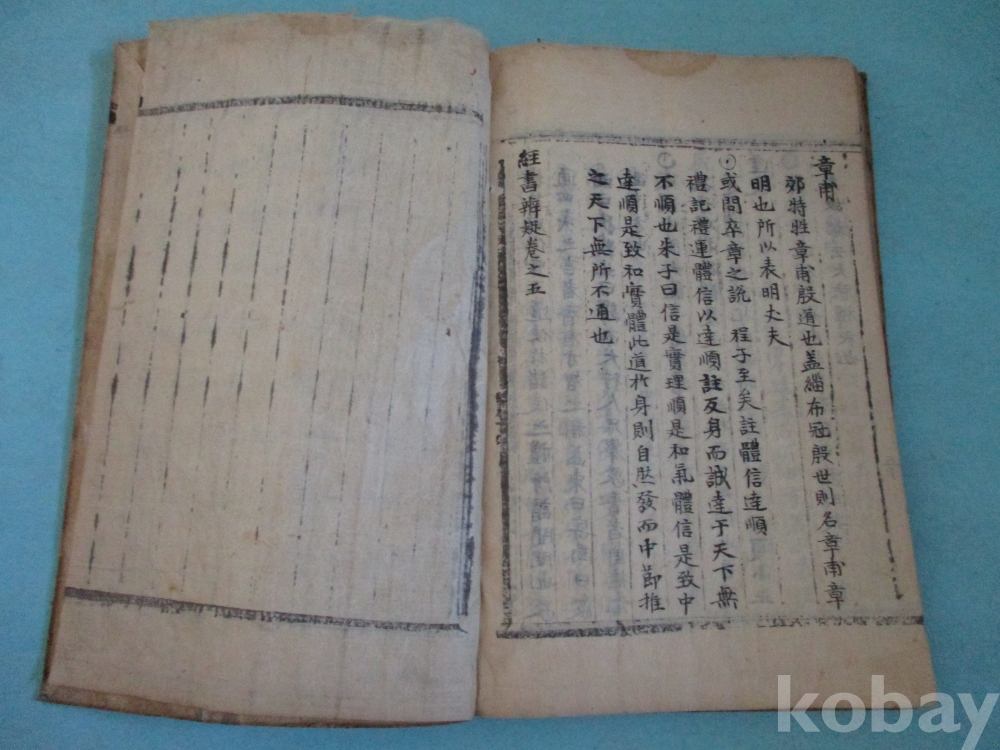 章甫
郊特牲章甫殷道也盖緇布冠殷世則名章甫章
明也所以表明丈夫
○或問卒章之說 程子至矣註體信達順
禮記禮運體信以達順註反身而誠達于天下無
不順也朱子曰信是實理順是和氣體信是致中
達順是致和實體此道於身則自然發而中節推
之天下無所不通也
經書辨疑卷之五
kobay